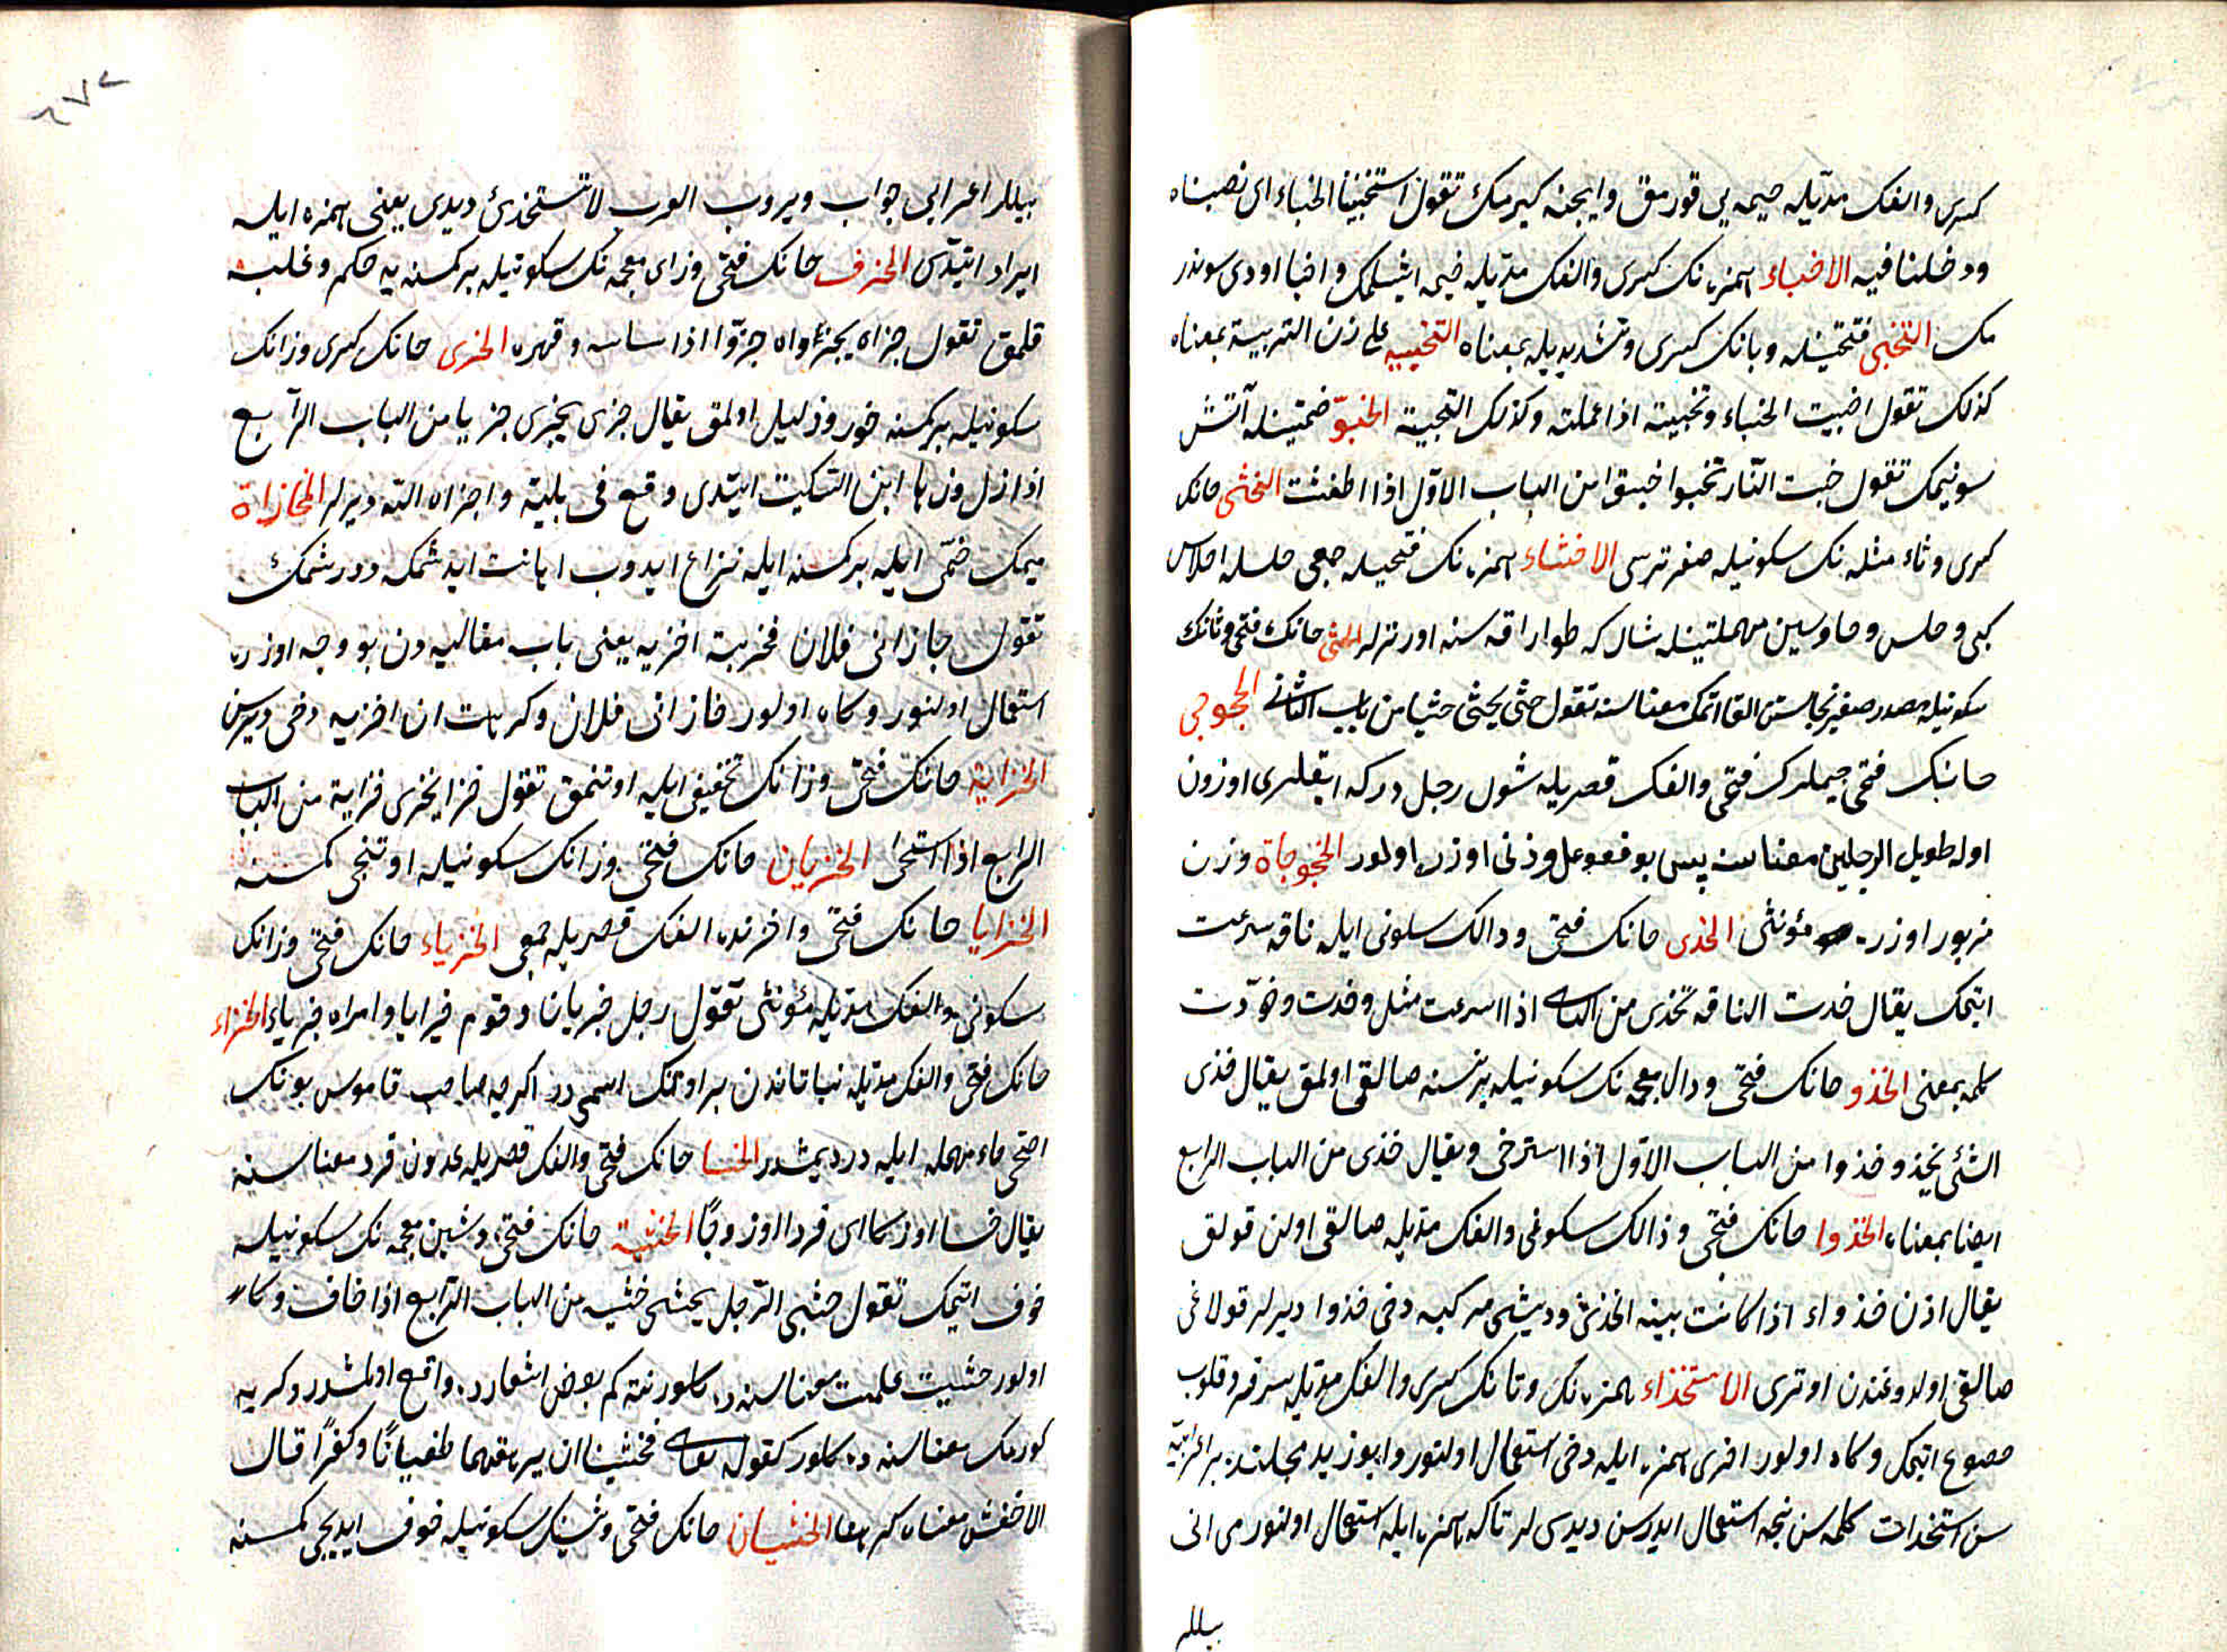 كسرى والفك مدّيله خيمه يى قورمق وايچنه كيرمك تقول استخبينا الخباء اى نصبناه
ودخلنا فيه الاخباء همزه نك كسرى والفك مدّيله خيمه ايشلمك واخبا اودى سوندر
مك التخبى فتحتينله وبانك كسرى وتشديديله بمعناه التخبيه على زن التربية بمعناه
كذلك تقول اخبيت الخباء وتخبيت اذا عملته وكذلك التخبية الخبوّ ضمتينله آتش
سوينمك تقول خبت النّار تخبوا خبوّا من الباب الاوّل اذا اطفئت الخثى خانك
كسرى وثاء مثلثه نك سكونيله صغر ترسى الاخثاء همزه نك فتحيله جمعى حلسله احلاس
كبى وحلس وحا وسين مهملتينله شال كه طوار ارقه سنه اورتر لر الخثى خانك فتحى وثانك
سكونيله مصدر صغير نجاستن القا اتمك معناسنه تقول خثى يخثى خثيا من باب الثانى الخجوجى
خانك فتحى جيملرك فتحى والفك قصريله شول رجل دركه ايقلرى اوزون
اوله طويل الرجلين معناسنه پس بو فعوعل وزنى اوزره اولور الخجوجاة وزن
مزبور اوزره مؤنثى الخدى خانك فتحى ودالك سكونى ايله ناقه سرعت
اتمك يقال خدت الناقه تخدى من الباب اذا اسرعت مثل وخدت وخوّدت
كلمه بمعنى الخذو خانك فتحى وذال معجمه نك سكونيله برنسنه صالقى اولمق يقال خذى
الشئ يخذو خذوا من الباب الاوّل اذا استرخى ويقال خذى من الباب الرابع
ايضا بمعناه الخذوا خانك فتحى وذالك سكونى والفك مدّيله صالقى اولن قولق
يقال اذن خذواء اذا كانت بينه الخذى وديشى مركبه دخى خذوا ديرلر قولاغى
صالقى اولدوغندن اوترى الاستخذاء همزه نك وتانك كسرى والفك مدّيله سرفرو قلوب
خضوع اتمك وكاه اولور اخرى همزه ايله دخى استعمال اولنور وابو زيد
سن استخذات كلمه سن نجه استعمال ايدرسن ديديلر تاكه همزه ايله استعمال اولنورمى انى
بيللر
بيللر اعرابى جواب ويروب العرب لا تستخذئ ديدى يعنى همزه ايله
ايراد ايتدى الخزو خانك فتحى وزاى معجمه نك سكونيله بر كمسنه يه حكم وغلبه
قلمق تقول خزاه يخزواه خزوّا اذا ساسه وقهره الخزى خانك كسرى وزانك
سكونيله بر كمسنه خور وذليل اولمق يقال خزى يخزى خزيا من الباب الرّابع
اذا ذل وذها ابن السّكيت ايتدى وقع فى بلية واخزاه الله ديرلر المخازاة
ميمك ضمّى ايله بر كمسنه ايله نزاع ايدوب اهانت ايدشمك ودرشمك
تقول خازانى فلان فخزيته اخزيه يعنى باب مغالبه دن بو وجه اوزره
استعمال اولنور وكاه اولور خازانى فلان وكرهت ان اخزيه دخى ديرسن
الخزاية خانك فتحى وزانك تخفيفى ايله اوتنمق تقول خزا يخزى خزاية من الباب
الرابع اذا استحى الخزيان خانك فتحى وزانك سكونيله اوتنجى كمسنه
الخزايا خانك فتحى واخرنده الفك قصريله جمعى الخزياء خانك فتحى وزانك
سكونى والفك مدّيله مؤنثى تقول رجل خزيانا وقوم خزايا وامراه خزياء الخزاء
خانك فتحى والفك مدّيله نباتاتدن بر اوتك اسمى در اكرچه صاحب قاموس بونك
اصحى حاء مهمله ايله در ديمشدر الخسا خانك فتحى والفك قصريله عددن فرد معناسنه
يقال خسا او زكا اى فردا او زوجًا الخشية خانك فتحى وشين معجمه نك سكونيله
خوف اتمك تقول خشى الرّجل يخشى خشيه من الباب الرّابع اذا خاف وكاه
اولور خشيت علمت معناسنه ده كلور نته كم بعض اشعارده واقع اولمشدر وكريه
كورمك معناسنه ده كلور كقوله تعالى فخشينا ان يرهقهما طغيانًا وكفرًا قال
الاخفش معناه كرهنا الخشيان خانك فتحى وشينك سكونيله خوف ايديجى كمسنه